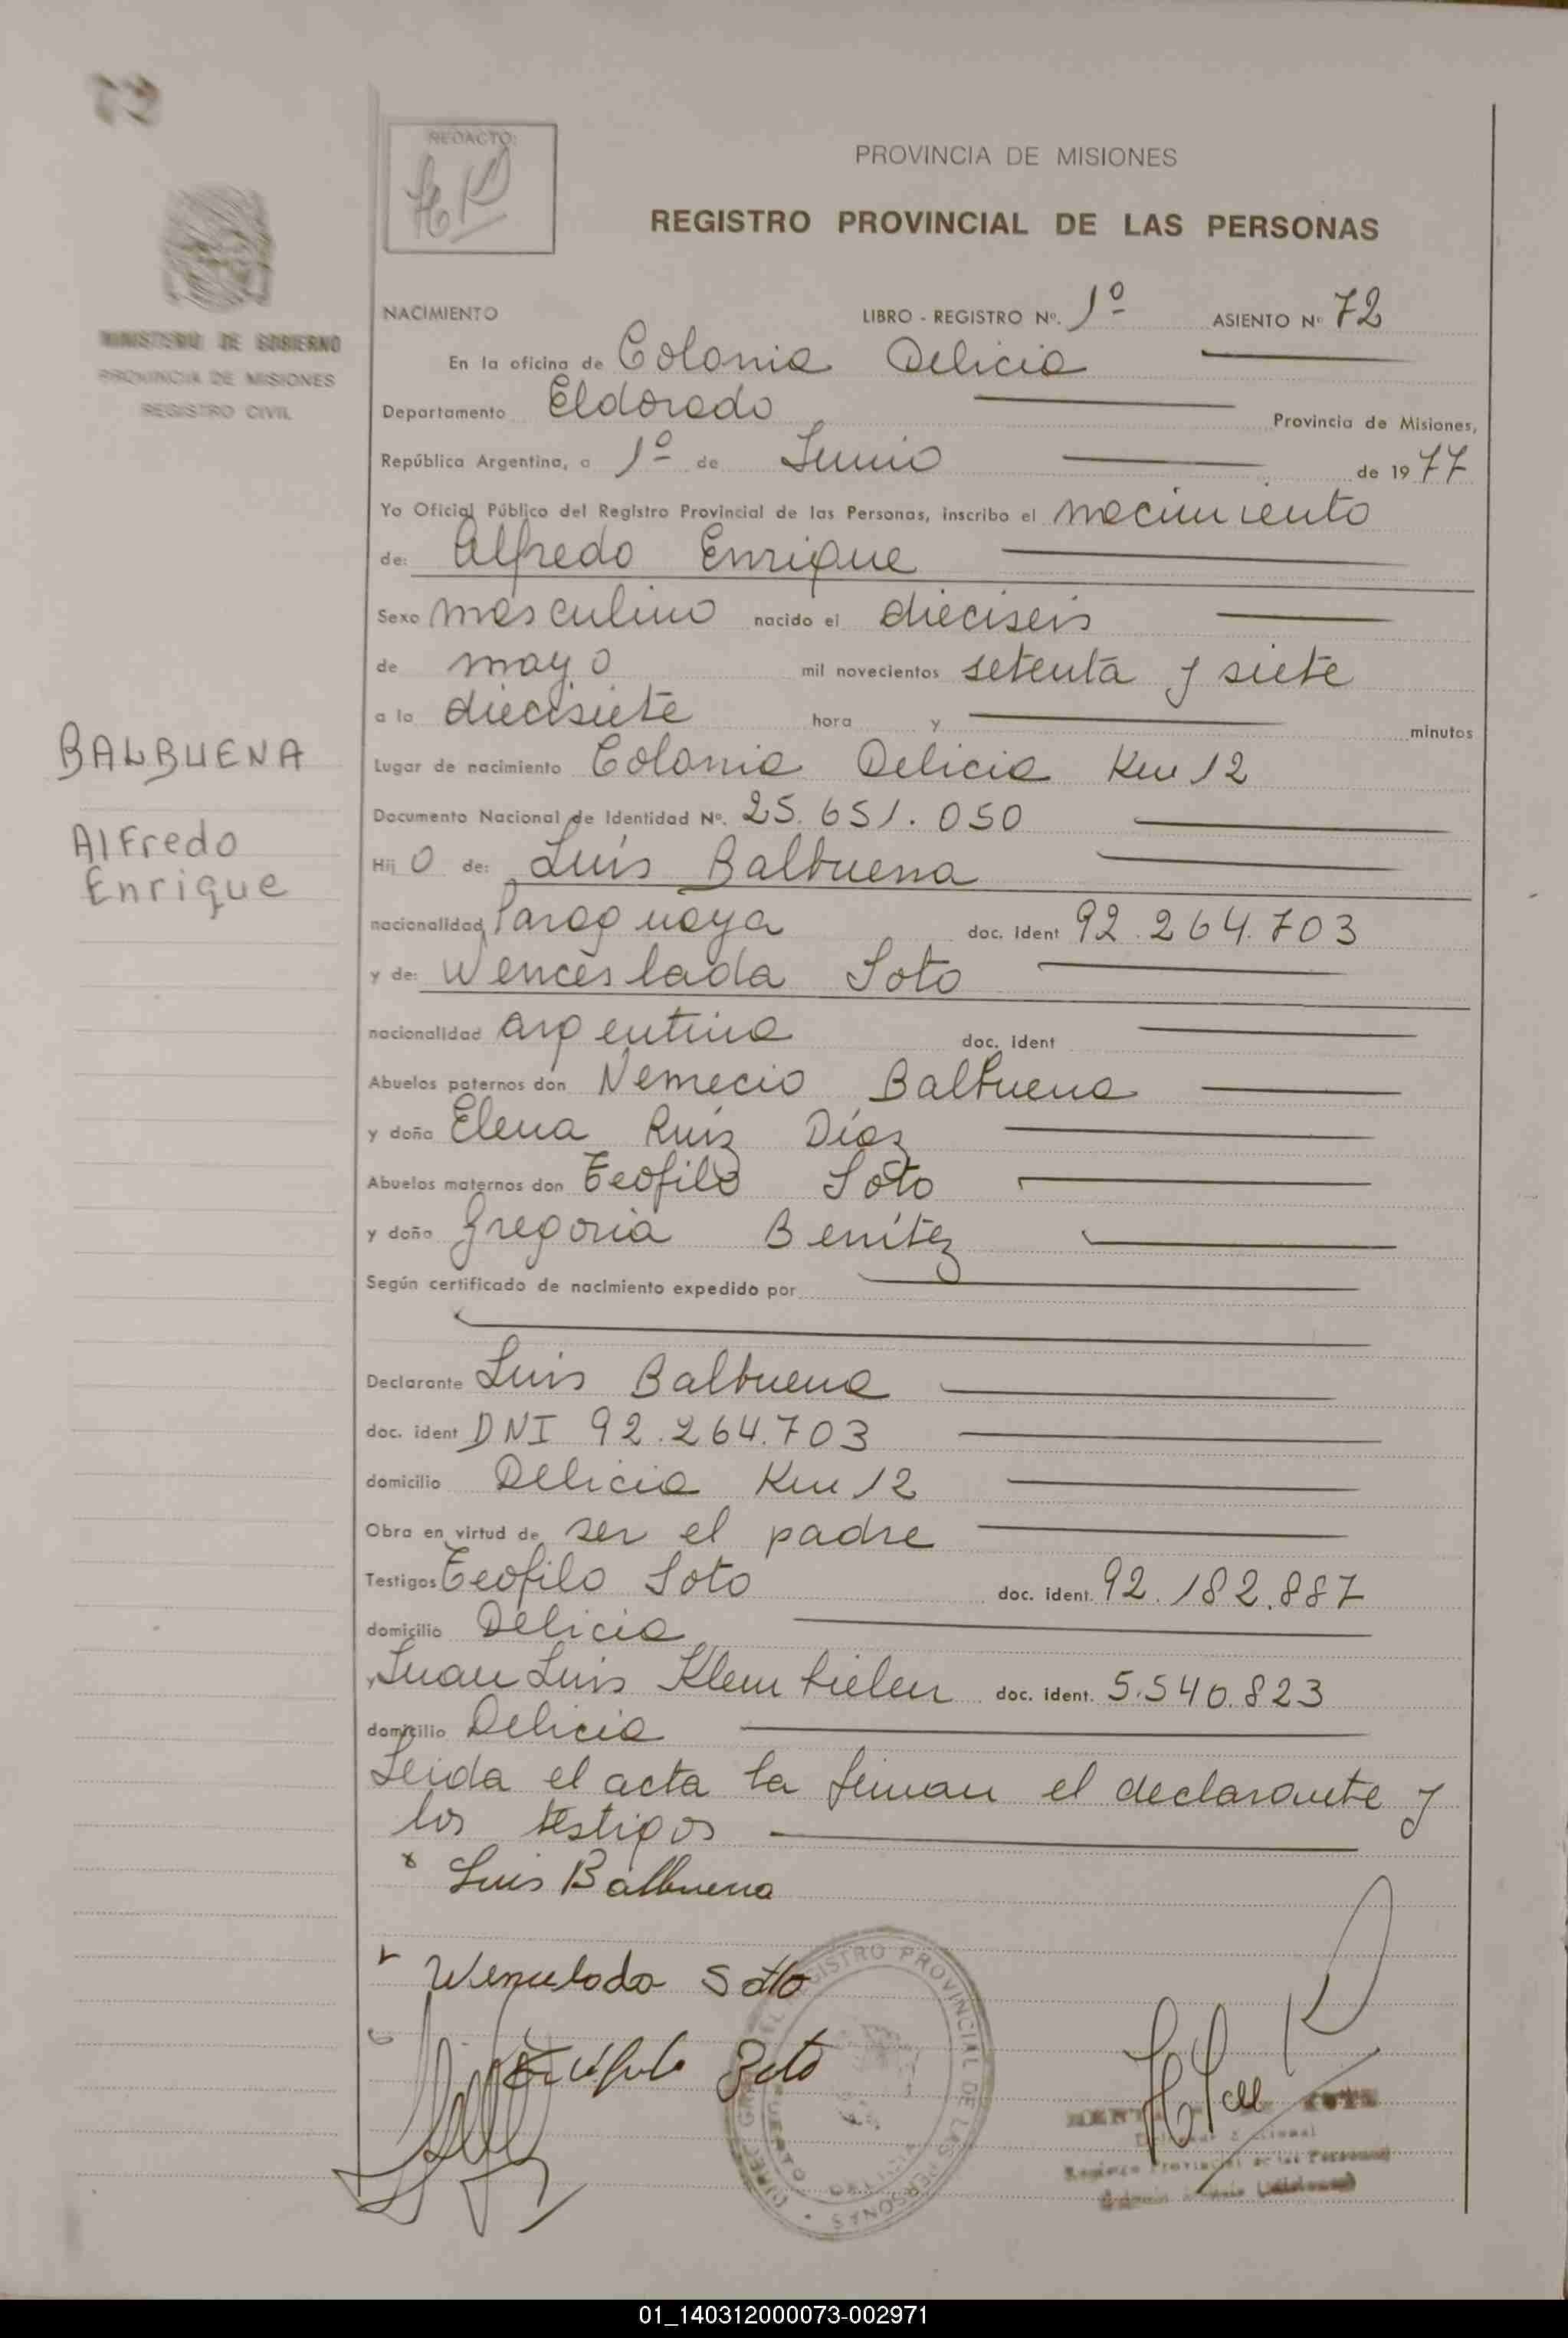 72
REDACTO:
PROVINCIA DE MISIONES
REGISTRO PROVINCIAL DE LAS PERSONAS
MINISTERIO DE GOBIERNO
PROVINCIA DE MISIONES
REGISTRO CIVIL
NACIMIENTO LIBRO - REGISTRO Nº. 1º ASIENTO Nº 72
En la oficina de Colonia Delicia
Departamento Eldorado Provincia de Misiones,
República Argentina, a 1º de Junio de 1977
Yo Oficial Público del Registro Provincial de las Personas, inscribo el nacimiento
de: Alfredo Enrique
Sexo masculino nacido el dieciseis
de mayo mil novecientos setenta y siete
a la diecisiete hora y minutos
BALBUENA
Lugar de nacimiento Colonia Delicia Km 12
Documento Nacional de Identidad Nº. 25.651.050
Alfredo
Enrique
Hij o de: Luis Balbuena
nacionalidad Paraguaya doc. ident 92.264.703
y de: Wenceslada Soto
nacionalidad argentina doc. ident
Abuelos paternos don Nemecio Balbuena
y doña Elena Ruíz Díaz
Abuelos maternos don Teofilo Soto
y doña Gregoria Benítez
Según certificado de nacimiento expedido por
Declarante Luis Balbuena
doc. ident DNI 92.264.703
domicilio Delicia Km 12
Obra en virtud de ser el padre
Testigos Teofilo Soto doc. ident. 92.182.887
domicilio Delicia
y Juan Luis doc. ident. 5.540.823
domicilio Delicia
Leida el acta la firman el declarante y
los testigos
x Luis Balbuena
Soto
Soto
REGISTRO PROVINCIAL DE LAS PERSONAS
01_140312000073-002971